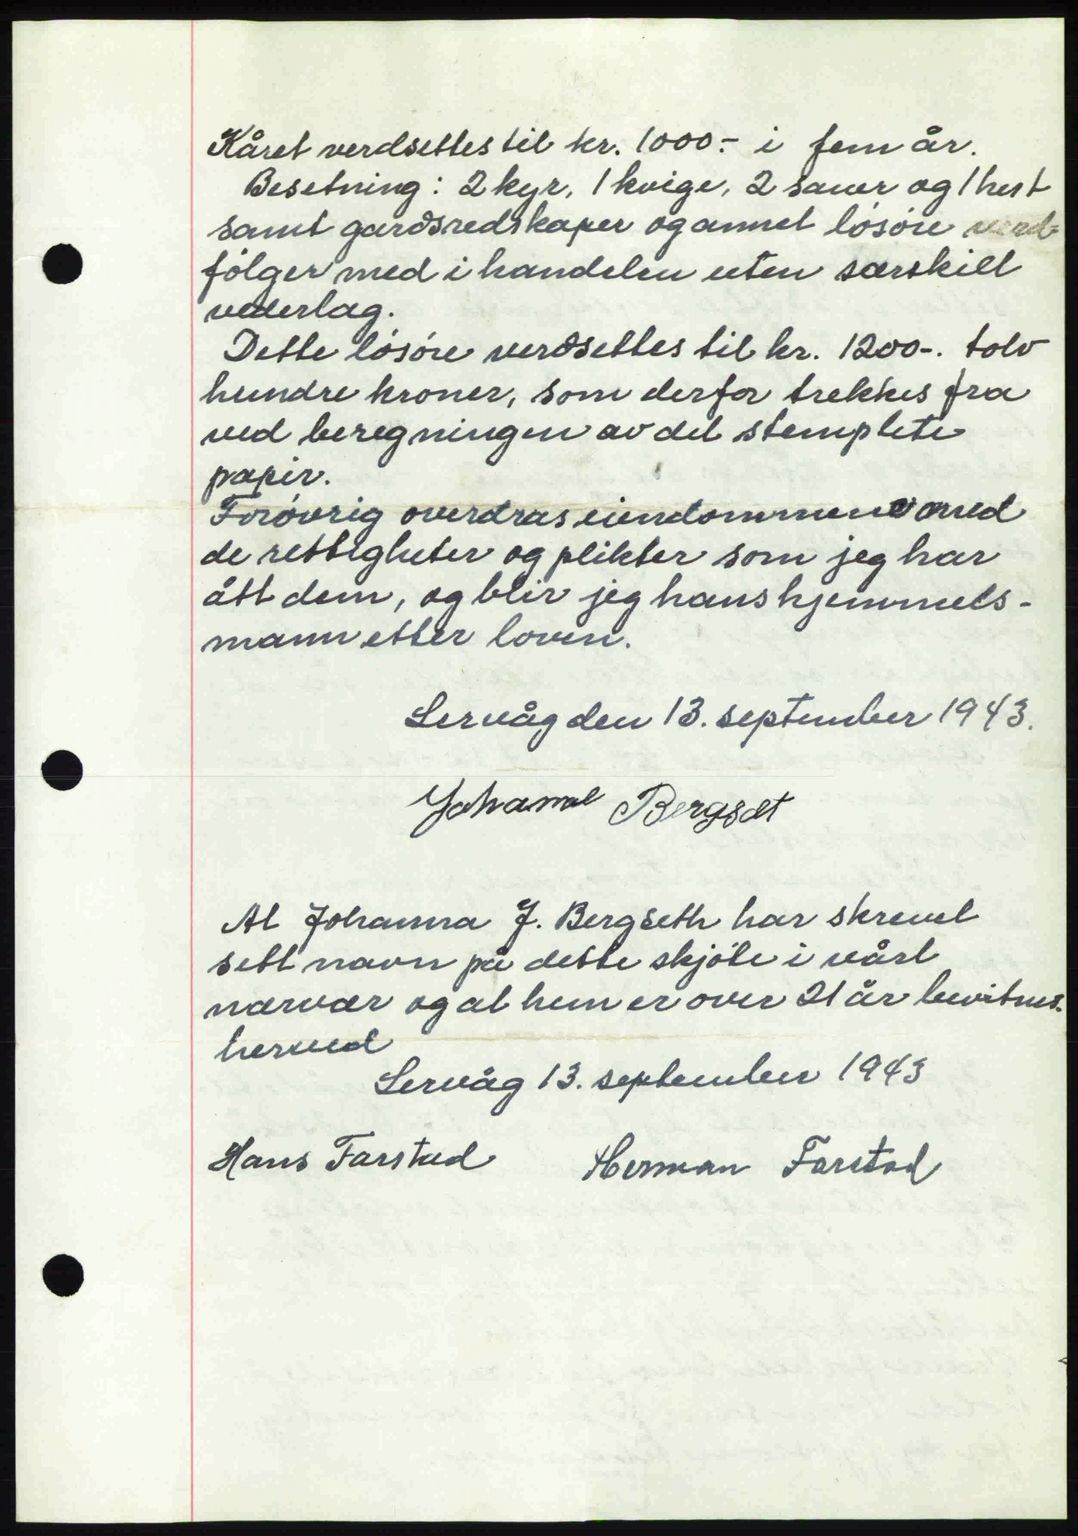 Kåret verdsettes til kr. 1000.- i fem år.
Besetning: 2 kyr, 1 kvige, 2 sauer og 1 hest
samt gardsredskaper og annet løsøre
følger med i handelen uten særskilt
vederlag.
Dette løsøre verdsettes til kr. 1200-. tolv
hundre kroner, som derfor trekkes fra
ved beregningen av det stemplete
papir.
Forøvrig overdras eiendommene med
de rettigheter og plikter som jeg har
ått dem, og blir jeg hans hjemmels-
mann etter loven.
Lervåg den 13. september 1943.
Johanna Bergset
At Johanna J. Bergseth har skrevet
sett navn på dette skjøte i vårt
nærvær og at hun er over 21 år bevitnes
herved
Lervåg 13. september 1943
Hans Farstad Herman Farstad